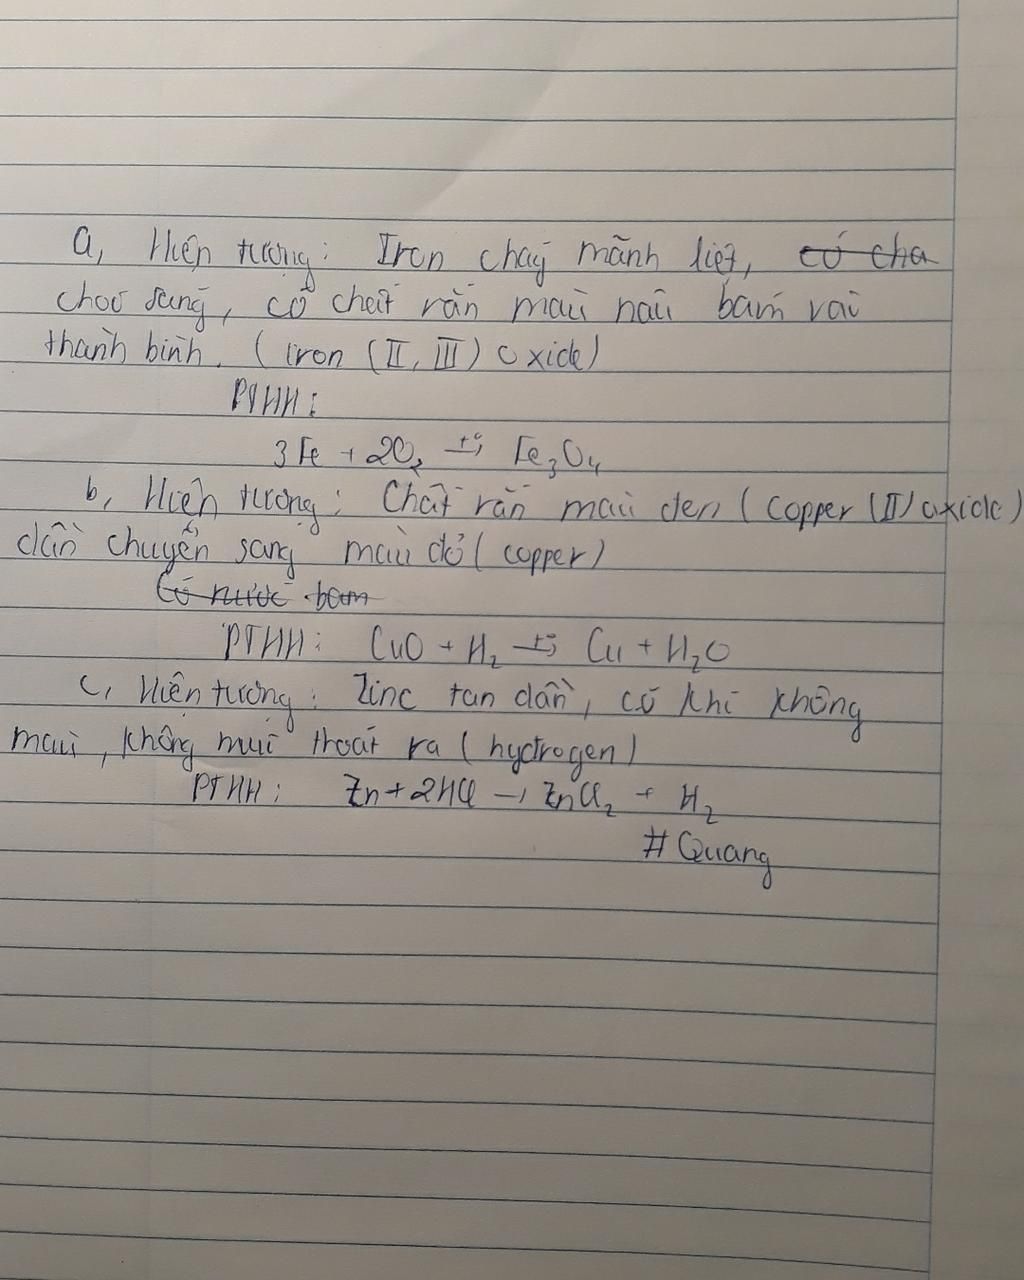 a, Hiện tượng: Iron cháy mãnh liệt, có cha
chói sáng, có chất rắn màu nâu bám vài
thành bình. (iron (II, III) oxide)
PTHH:
3Fe + 2O₂ —t°→ Fe₃O₄
b, Hiện tượng: Chất rắn màu đen (Copper (II) oxide)
dần chuyển sang màu đỏ (copper)
Có nước bam
PTHH: CuO + H₂ —t°→ Cu + H₂O
c, Hiện tượng: Zinc tan dần, có khí không
màu, không mùi thoát ra (hydrogen)
PTHH: Zn + 2HCl → ZnCl₂ + H₂
# Quang